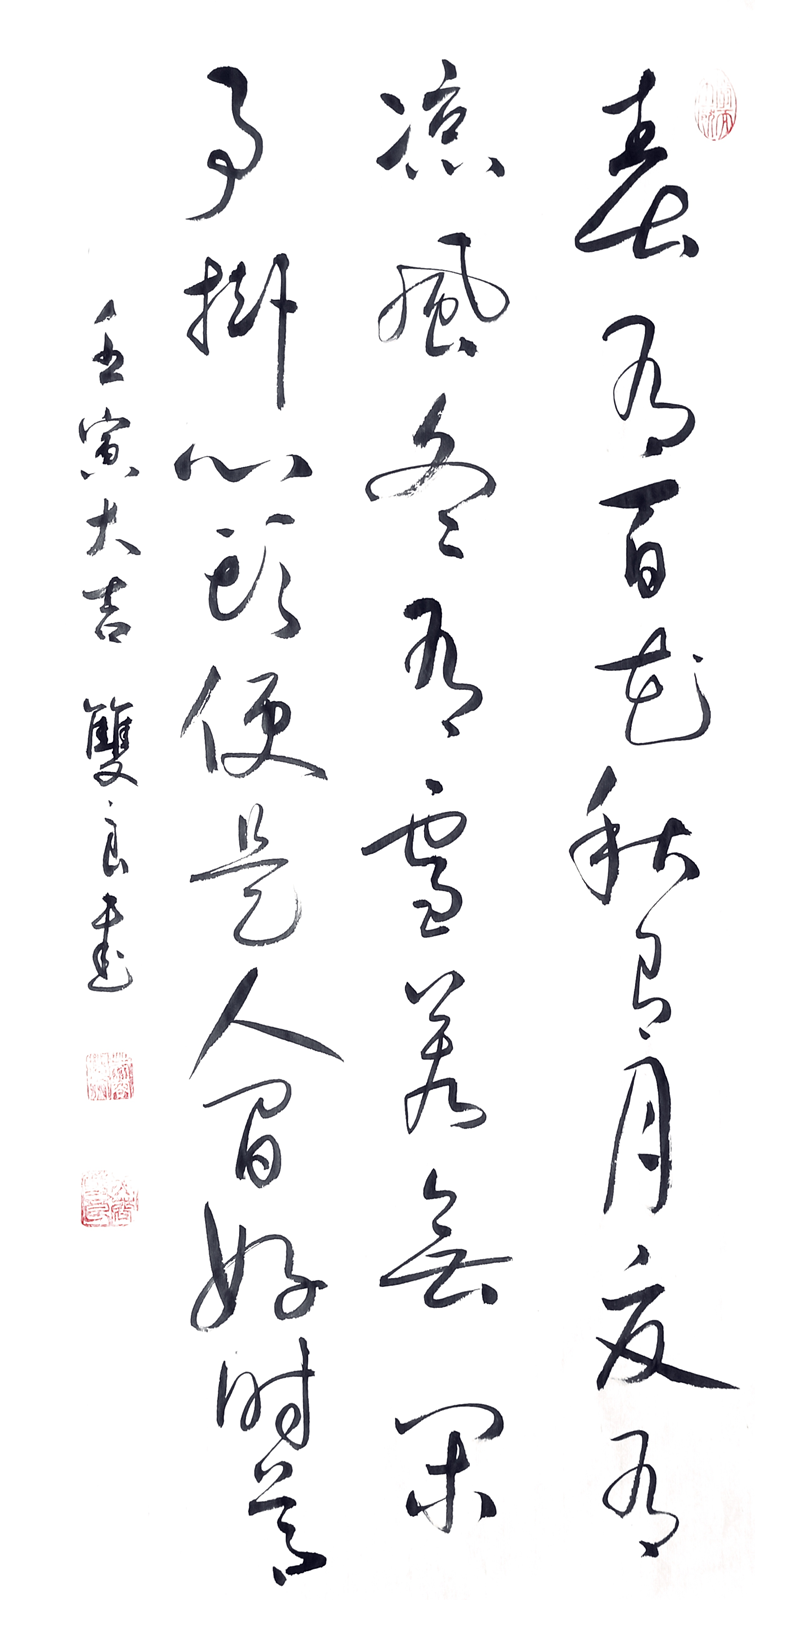 春有百花秋有月夏有
凉風冬有雪若無閑
事掛心頭便是人間好时节
壬寅大吉 雙良書